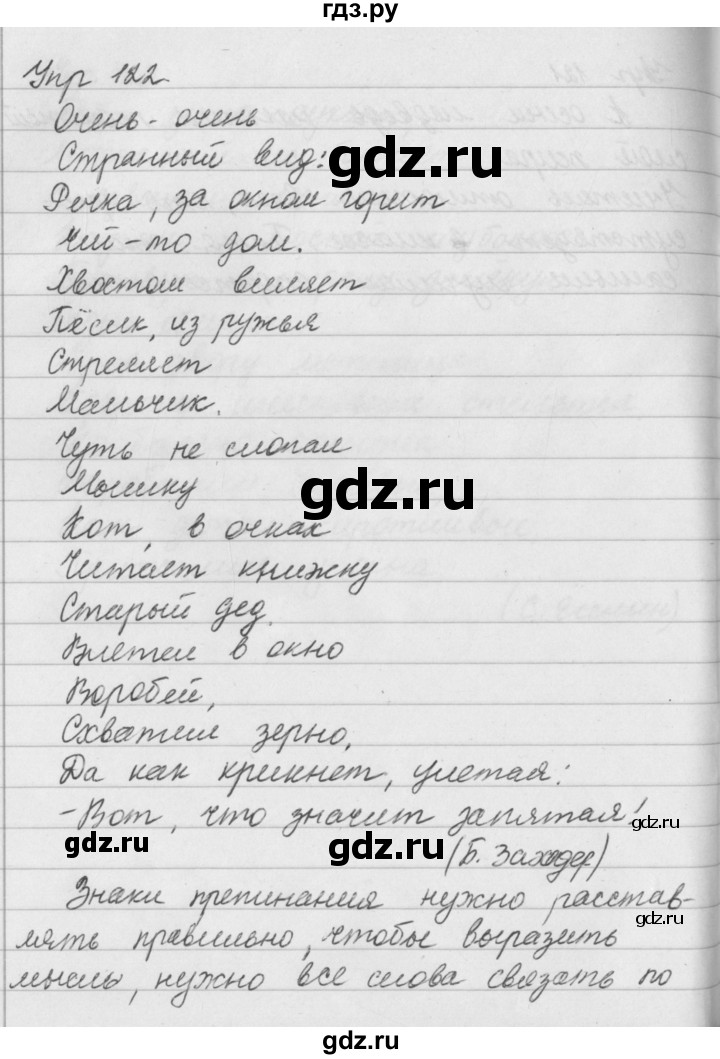 гдз.ру
Упр 122.
Очень-очень
Странный вид:
gdz.ru
Речка, за окном горит
Чей-то дом.
Хвостом виляет
Пёсик, из ружья
Стреляет
Мальчик.
Чуть не слопал
Мышку
gdz.ru
Кот, в очках
Читает книжку
Старый дед.
Влетел в окно
Воробей,
Схватил зерно,
Да как крикнет, улетая:
-Вот, что значит запятая!
gdz.ru
gdz.ru
gdz.ru
(Б. Заходер)
Знаки препинания нужно расстав-
gdz.ru
лять правильно, чтобы выразить
мысль, нужно все слова связать по
gdz.ru